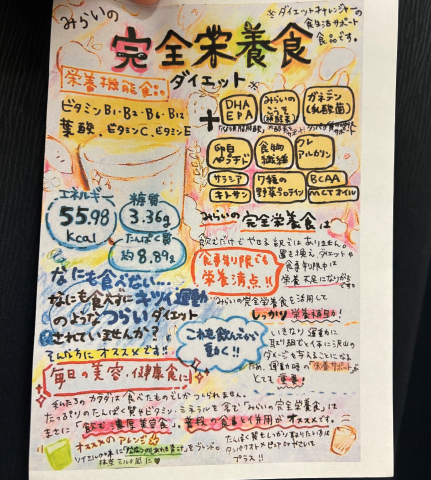 みらいの
完全栄養食
ダイエット
※ダイエットチャレンジャーの
食生活サポート
食品です。
栄養機能食品
ビタミンB1・B2・B6・B12
葉酸、ビタミンC、ビタミンE
+
DHA
EPA
みらいの
こうそ
ガネデン
(乳酸菌)
卵白
ペプチド
食物
繊維
フレ
アルカリン
サラシア
キトサン
7種の
野菜
BCAA
MCTオイル
エネルギー
55.98
kcal
糖質
3.36g
たんぱく質
約8.89g
みらいの完全栄養食は
飲むだけでやせる訳ではありません。
置き換えダイエットや
食事制限中は
栄養不足になりがち
です
食事制限でも
栄養満点!!
なにも食べない…
なにも食べずにキツイ運動
のようなつらいダイエット
されていませんか?
そんな方にオススメです!!
みらいの完全栄養食を活用して
しっかり栄養補助!
いきなり運動に
取り組むと体に沢山の
ダメージを与えることになる
ため、運動時の「栄養サポート」が
とても重要!
これを飲んでから
動く!!
毎日の美容、健康食に!
私たちのカラダは食べたものでしかつくられません。
たっぷりのたんぱく質やビタミン・ミネラルを含む「みらいの完全栄養食」は
まさに「飲む濃厚美容食」普段の食事と併用がオススメです。
オススメのアレンジ
たんぱく質をしっかり
プラス!!